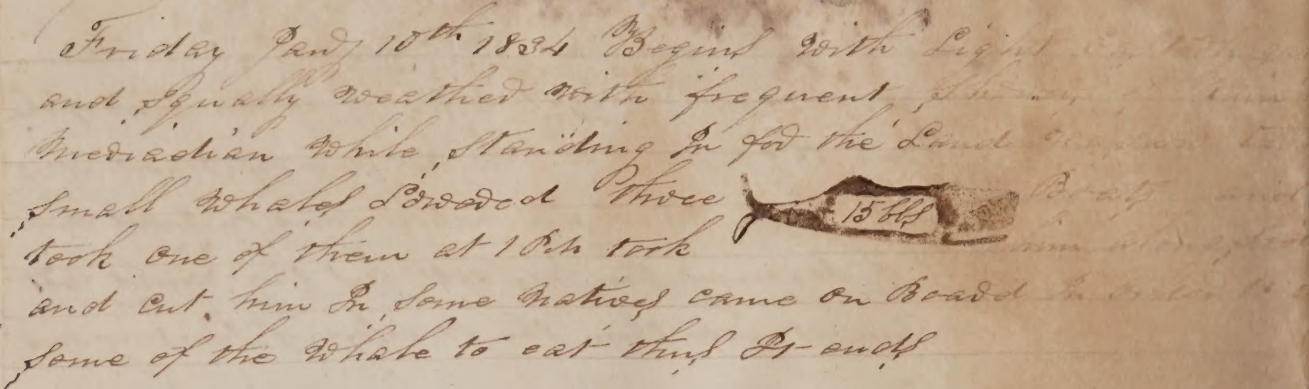 Friday Jany 10th 1834 Begins with Light
and squally weather with frequent
Meriadian while standing In for the Land
small whales Lowered three 15 bbls Boats and
took one of them at 1 PM took him along
and cut him In some natives came on Board In order to
some of the whale to eat thus It ends